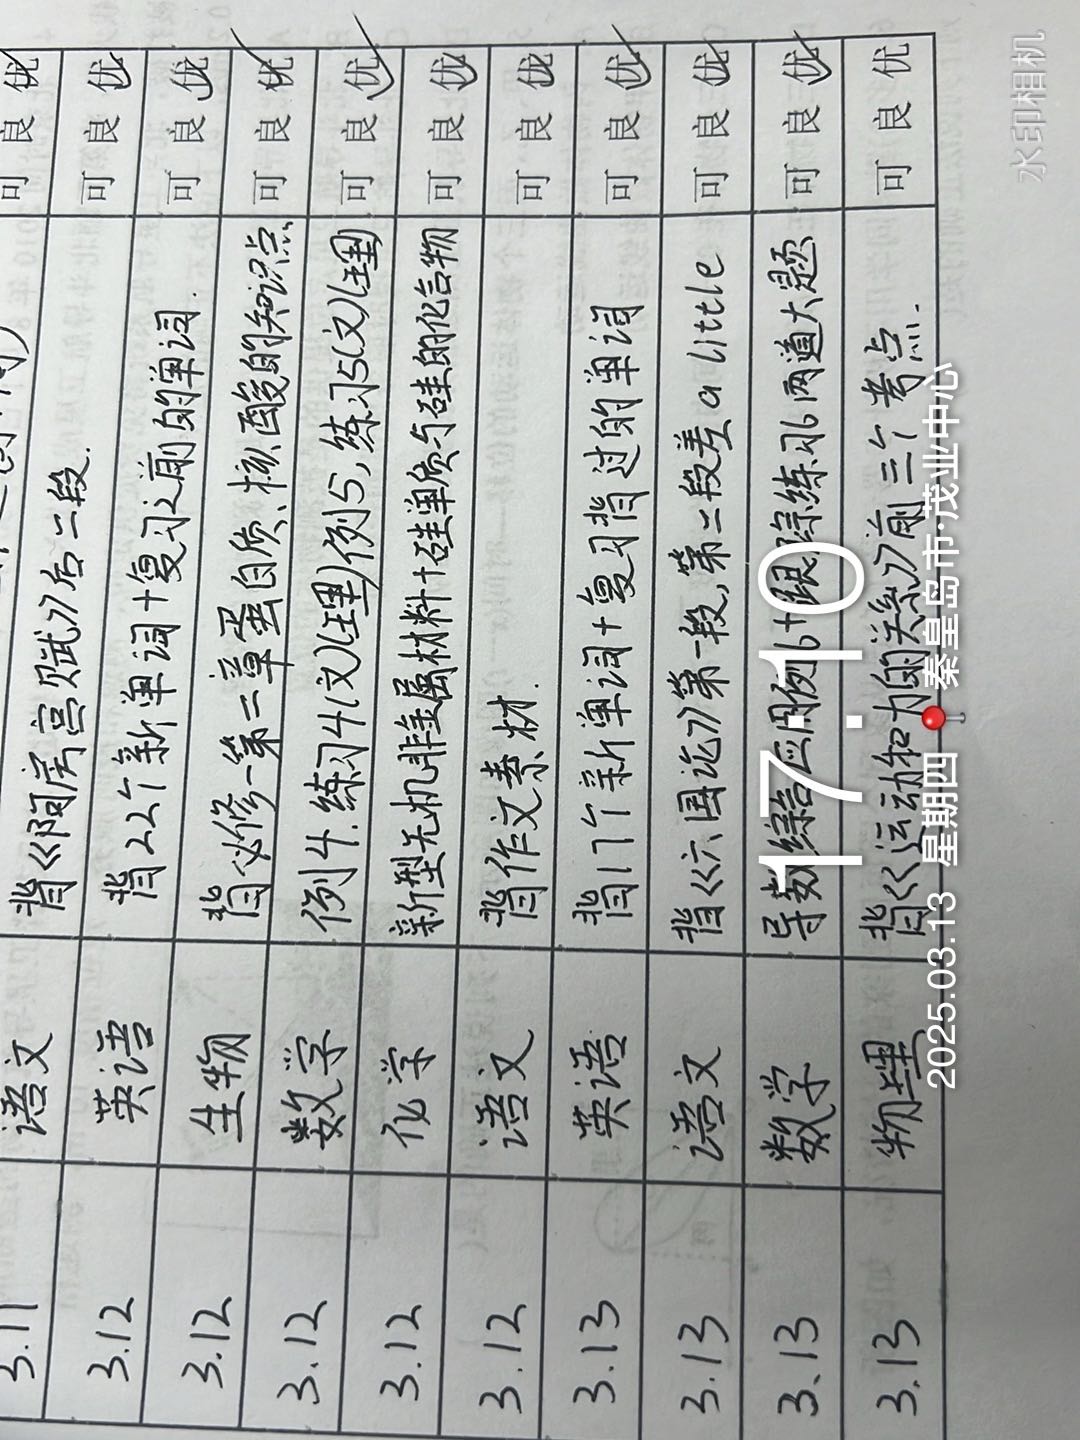 3.11 语文 背《阿房宫赋》后二段. 可 良 优
3.12 英语 背22个新单词+复习之前的单词. 可 良 优
3.12 生物 背必修一第二章蛋白质、核酸的知识点 可 良 优
3.12 数学 例4.练习4(文)(理)例5,练习5(文)(理) 可 良 优
3.12 化学 新型无机非金属材料+硅单质与硅的化合物 可 良 优
3.12 语文 背作文素材. 可 良 优
3.13 英语 背17个新单词+复习背过的单词 可 良 优
3.13 语文 背《六国论》第一段,第二段差a little 可 良 优
3.13 数学 导数综合应用例6+跟踪练习6两道大题 可 良 优
3.13 物理 背《运动和力的关系》前三个考点. 可 良 优
17:10
2025.03.13 星期四 秦皇岛市·茂业中心
水印相机